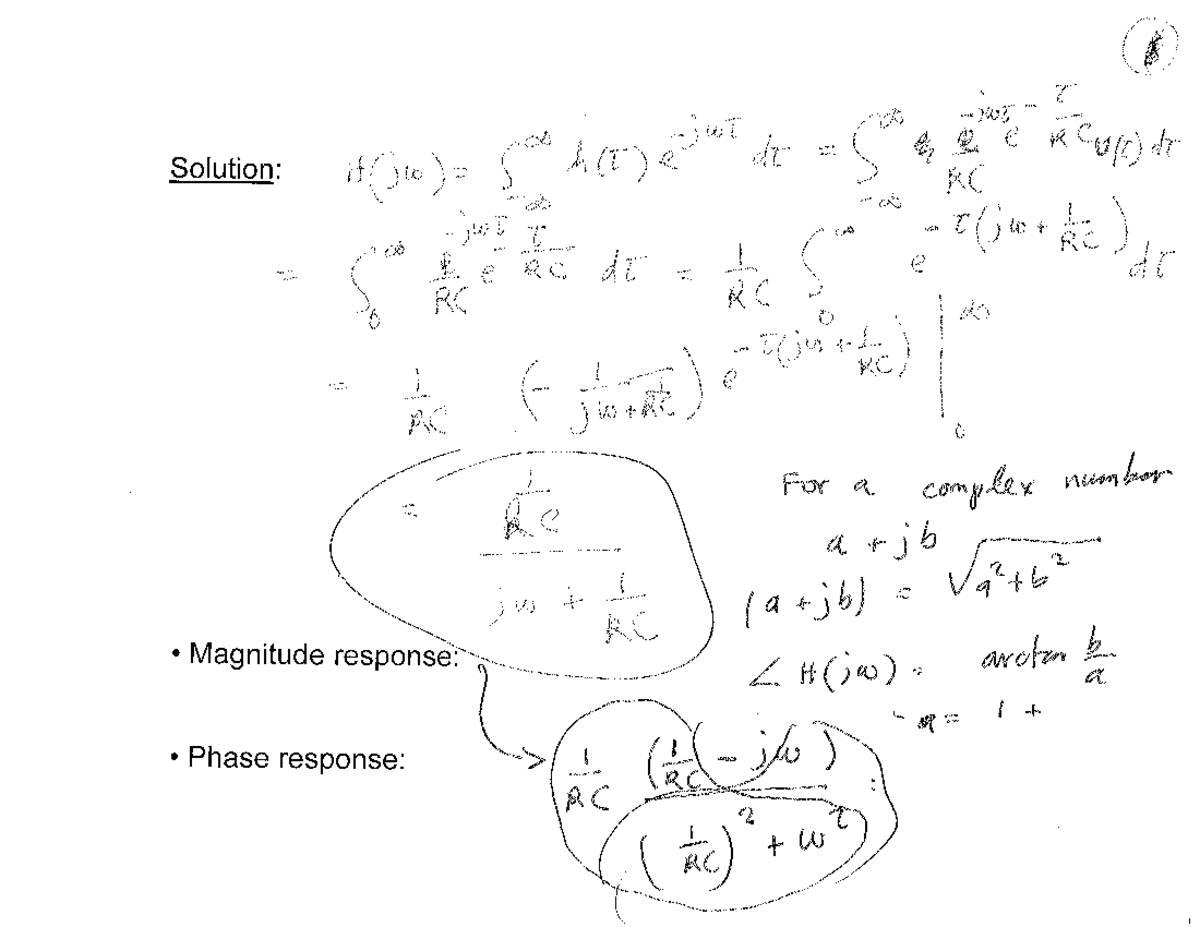 Solution: H(jω) = ∫_{-∞}^{∞} h(τ) e^{-jωτ} dτ = ∫_{-∞}^{∞} 1/RC e^{-jωτ} e^{-τ/RC} u(τ) dτ
= ∫_0^∞ 1/RC e^{-jωτ - τ/RC} dτ = 1/RC ∫_0^∞ e^{-τ(jω + 1/RC)} dτ
= 1/RC (- 1/(jω + 1/RC)) e^{-τ(jω + 1/RC)} |_0^∞
= (1/RC)/(jω + 1/RC)
For a complex number
a + jb
|a + jb| = √(a² + b²)
• Magnitude response:
∠ H(jω) = arctan b/a
= 1 +
• Phase response:
1/RC (1/RC - jω)/((1/RC)² + ω²) :